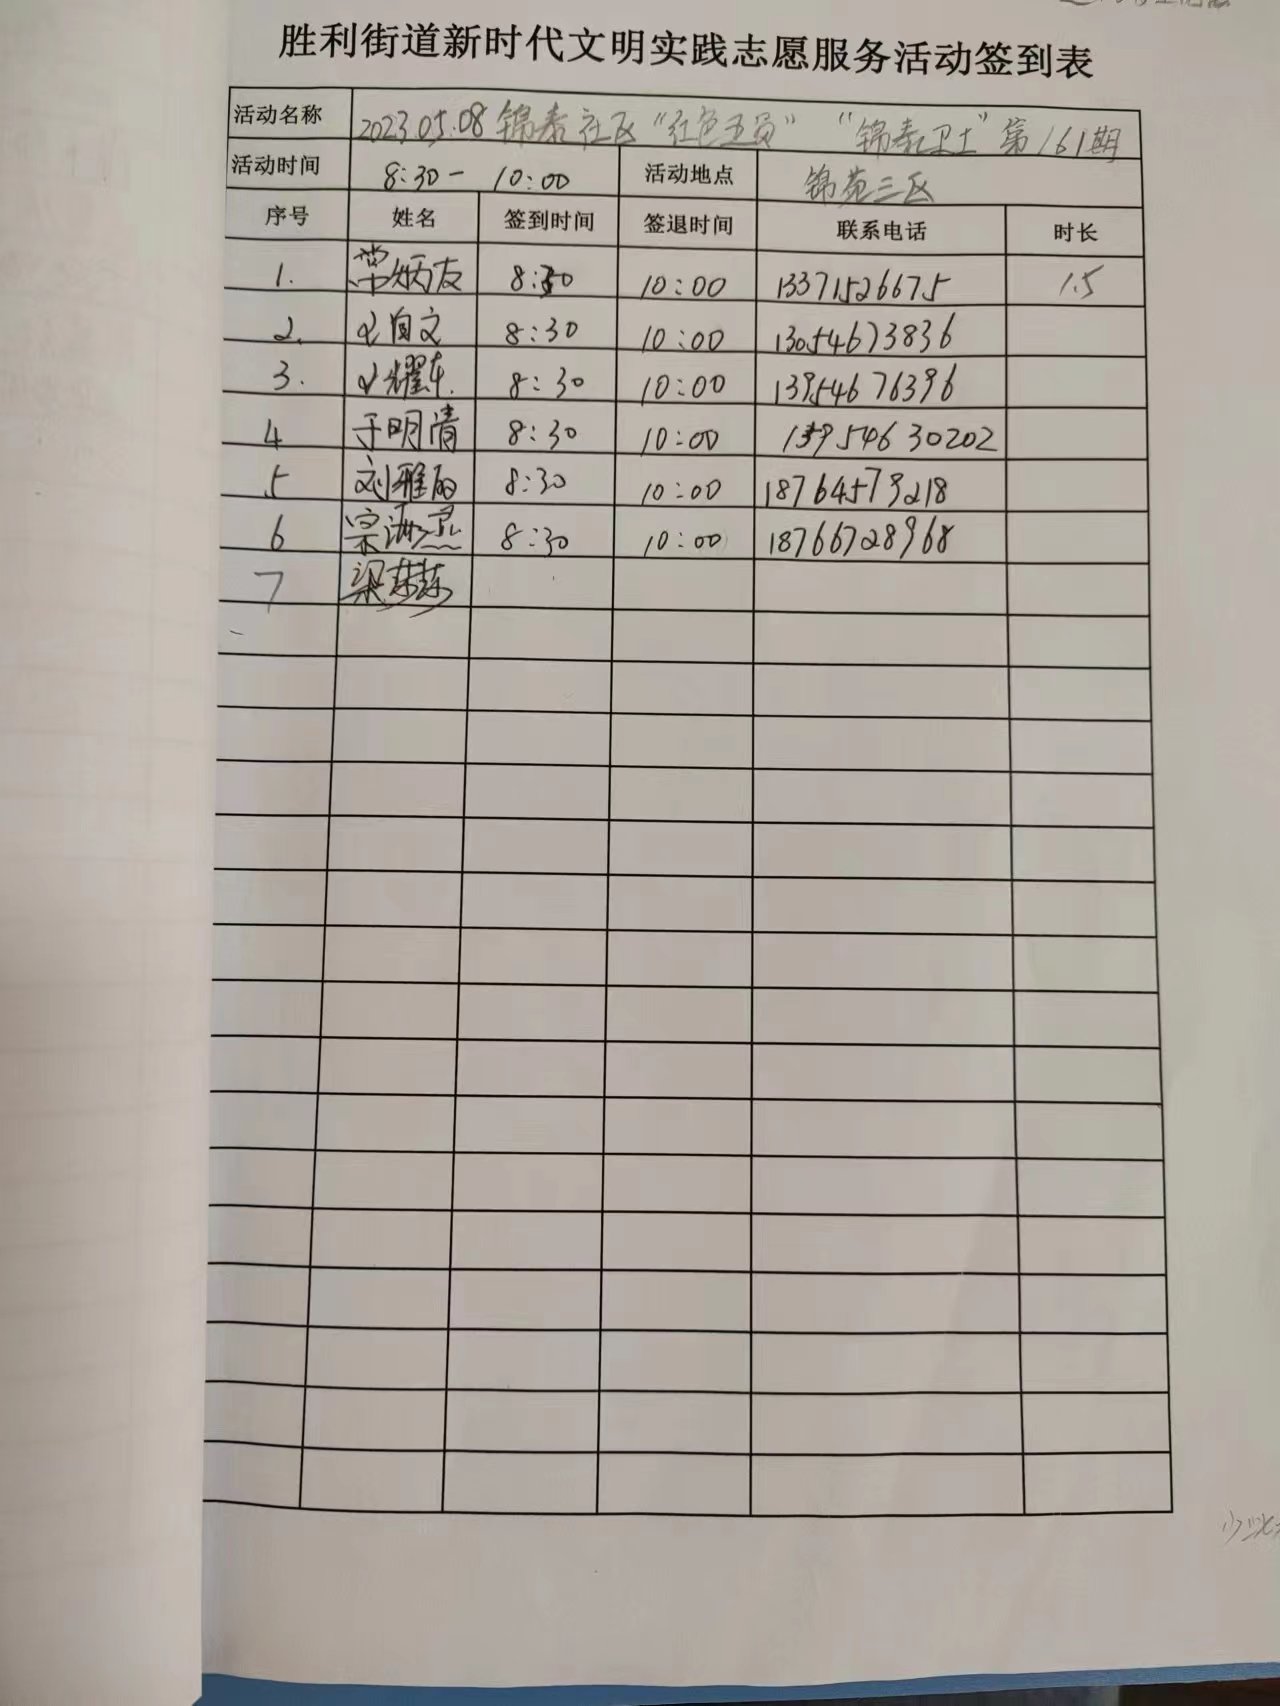 胜利街道新时代文明实践志愿服务活动签到表
活动名称 2023.05.08 锦泰社区“红色五员” “锦泰卫士”第161期
活动时间 8:30- 10:00 活动地点 锦苑三区
序号 姓名 签到时间 签退时间 联系电话 时长
1. 常炳友 8:30 10:00 13371526675 1.5
2. 自文 8:30 10:00 13054673836
3. 耀东 8:30 10:00 13954676396
4 于明清 8:30 10:00 13954630202
5 刘雅丽 8:30 10:00 18764573218
6 宗 8:30 10:00 18766728968
7 梁